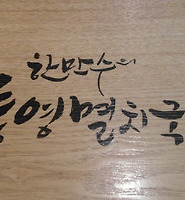 한만수의
통영멸치국